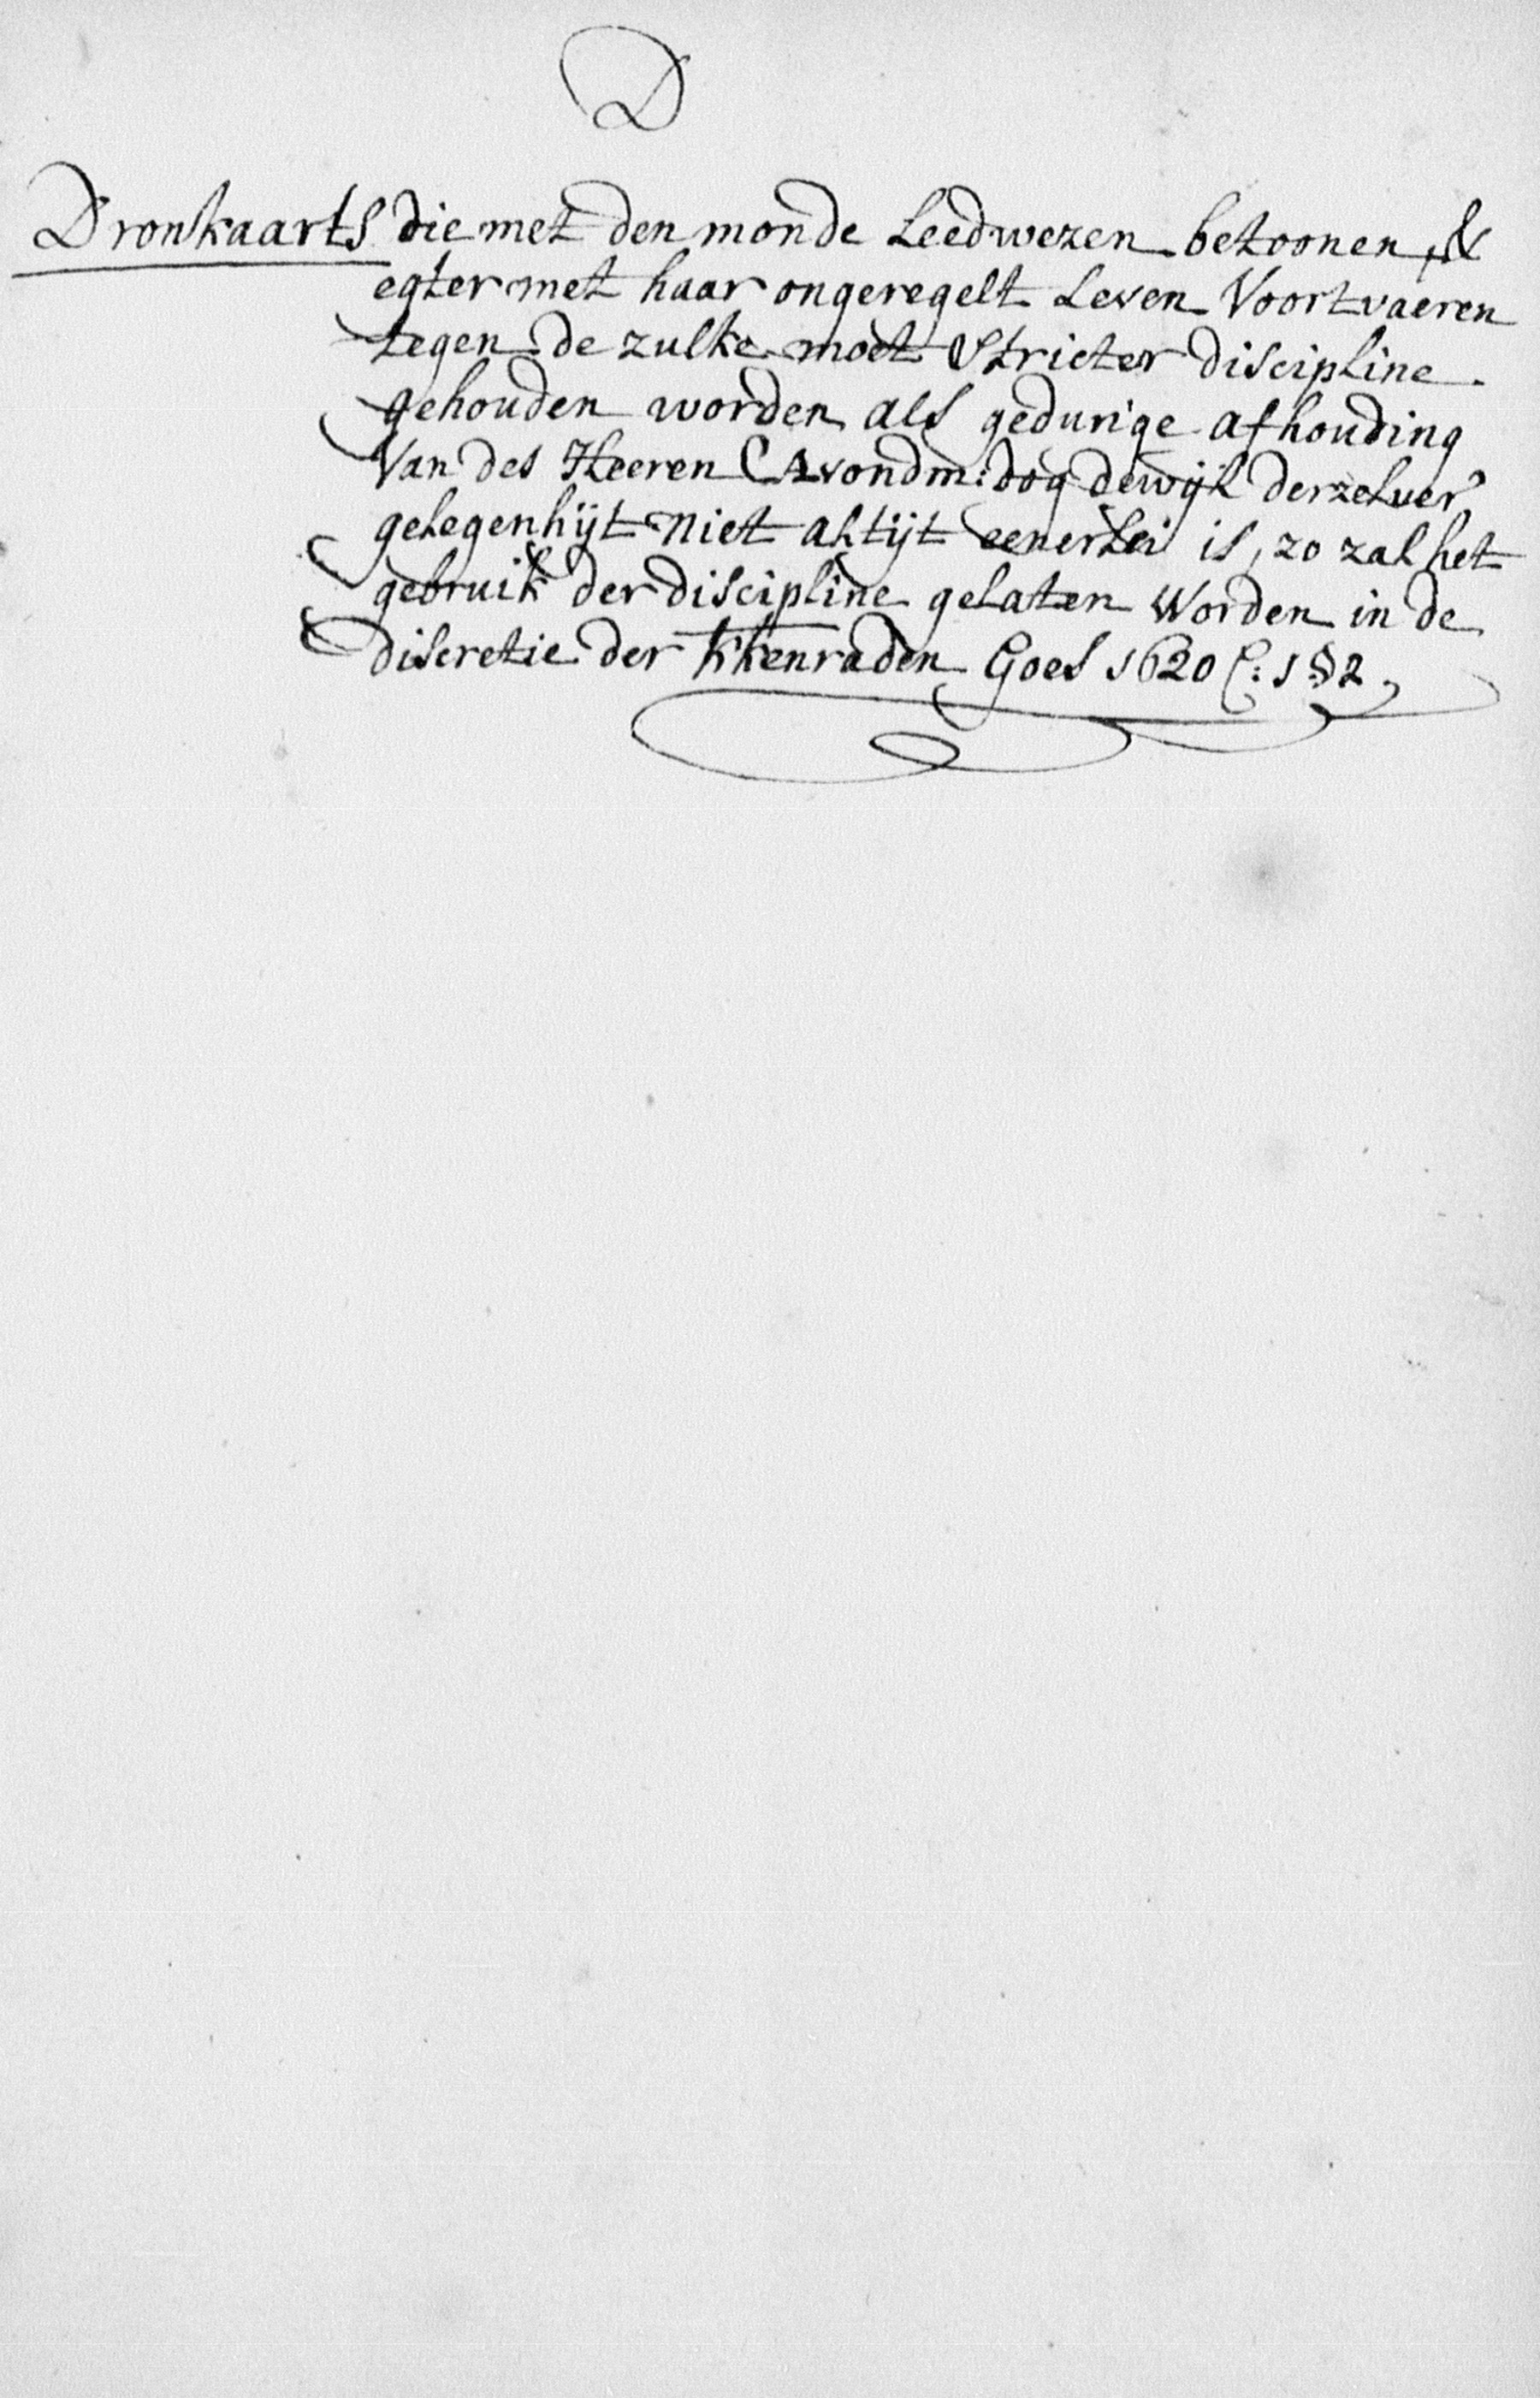 D
Dronkaarts die met den monde Leedwezen betoonen, &
egter met haar ongeregelt Leven Voortvaeren
tegen de zulke moet Stricter discipline
gehouden worden als gedurige afhouding
Van des Heeren Avondm: dog dewijl derzelver
gelegenhijt niet altijt eenerlei is, zo zal het
gebruik der discipline gelaten Worden in de
discretie der kkenraden Goes 1620 C: 1 § 2.